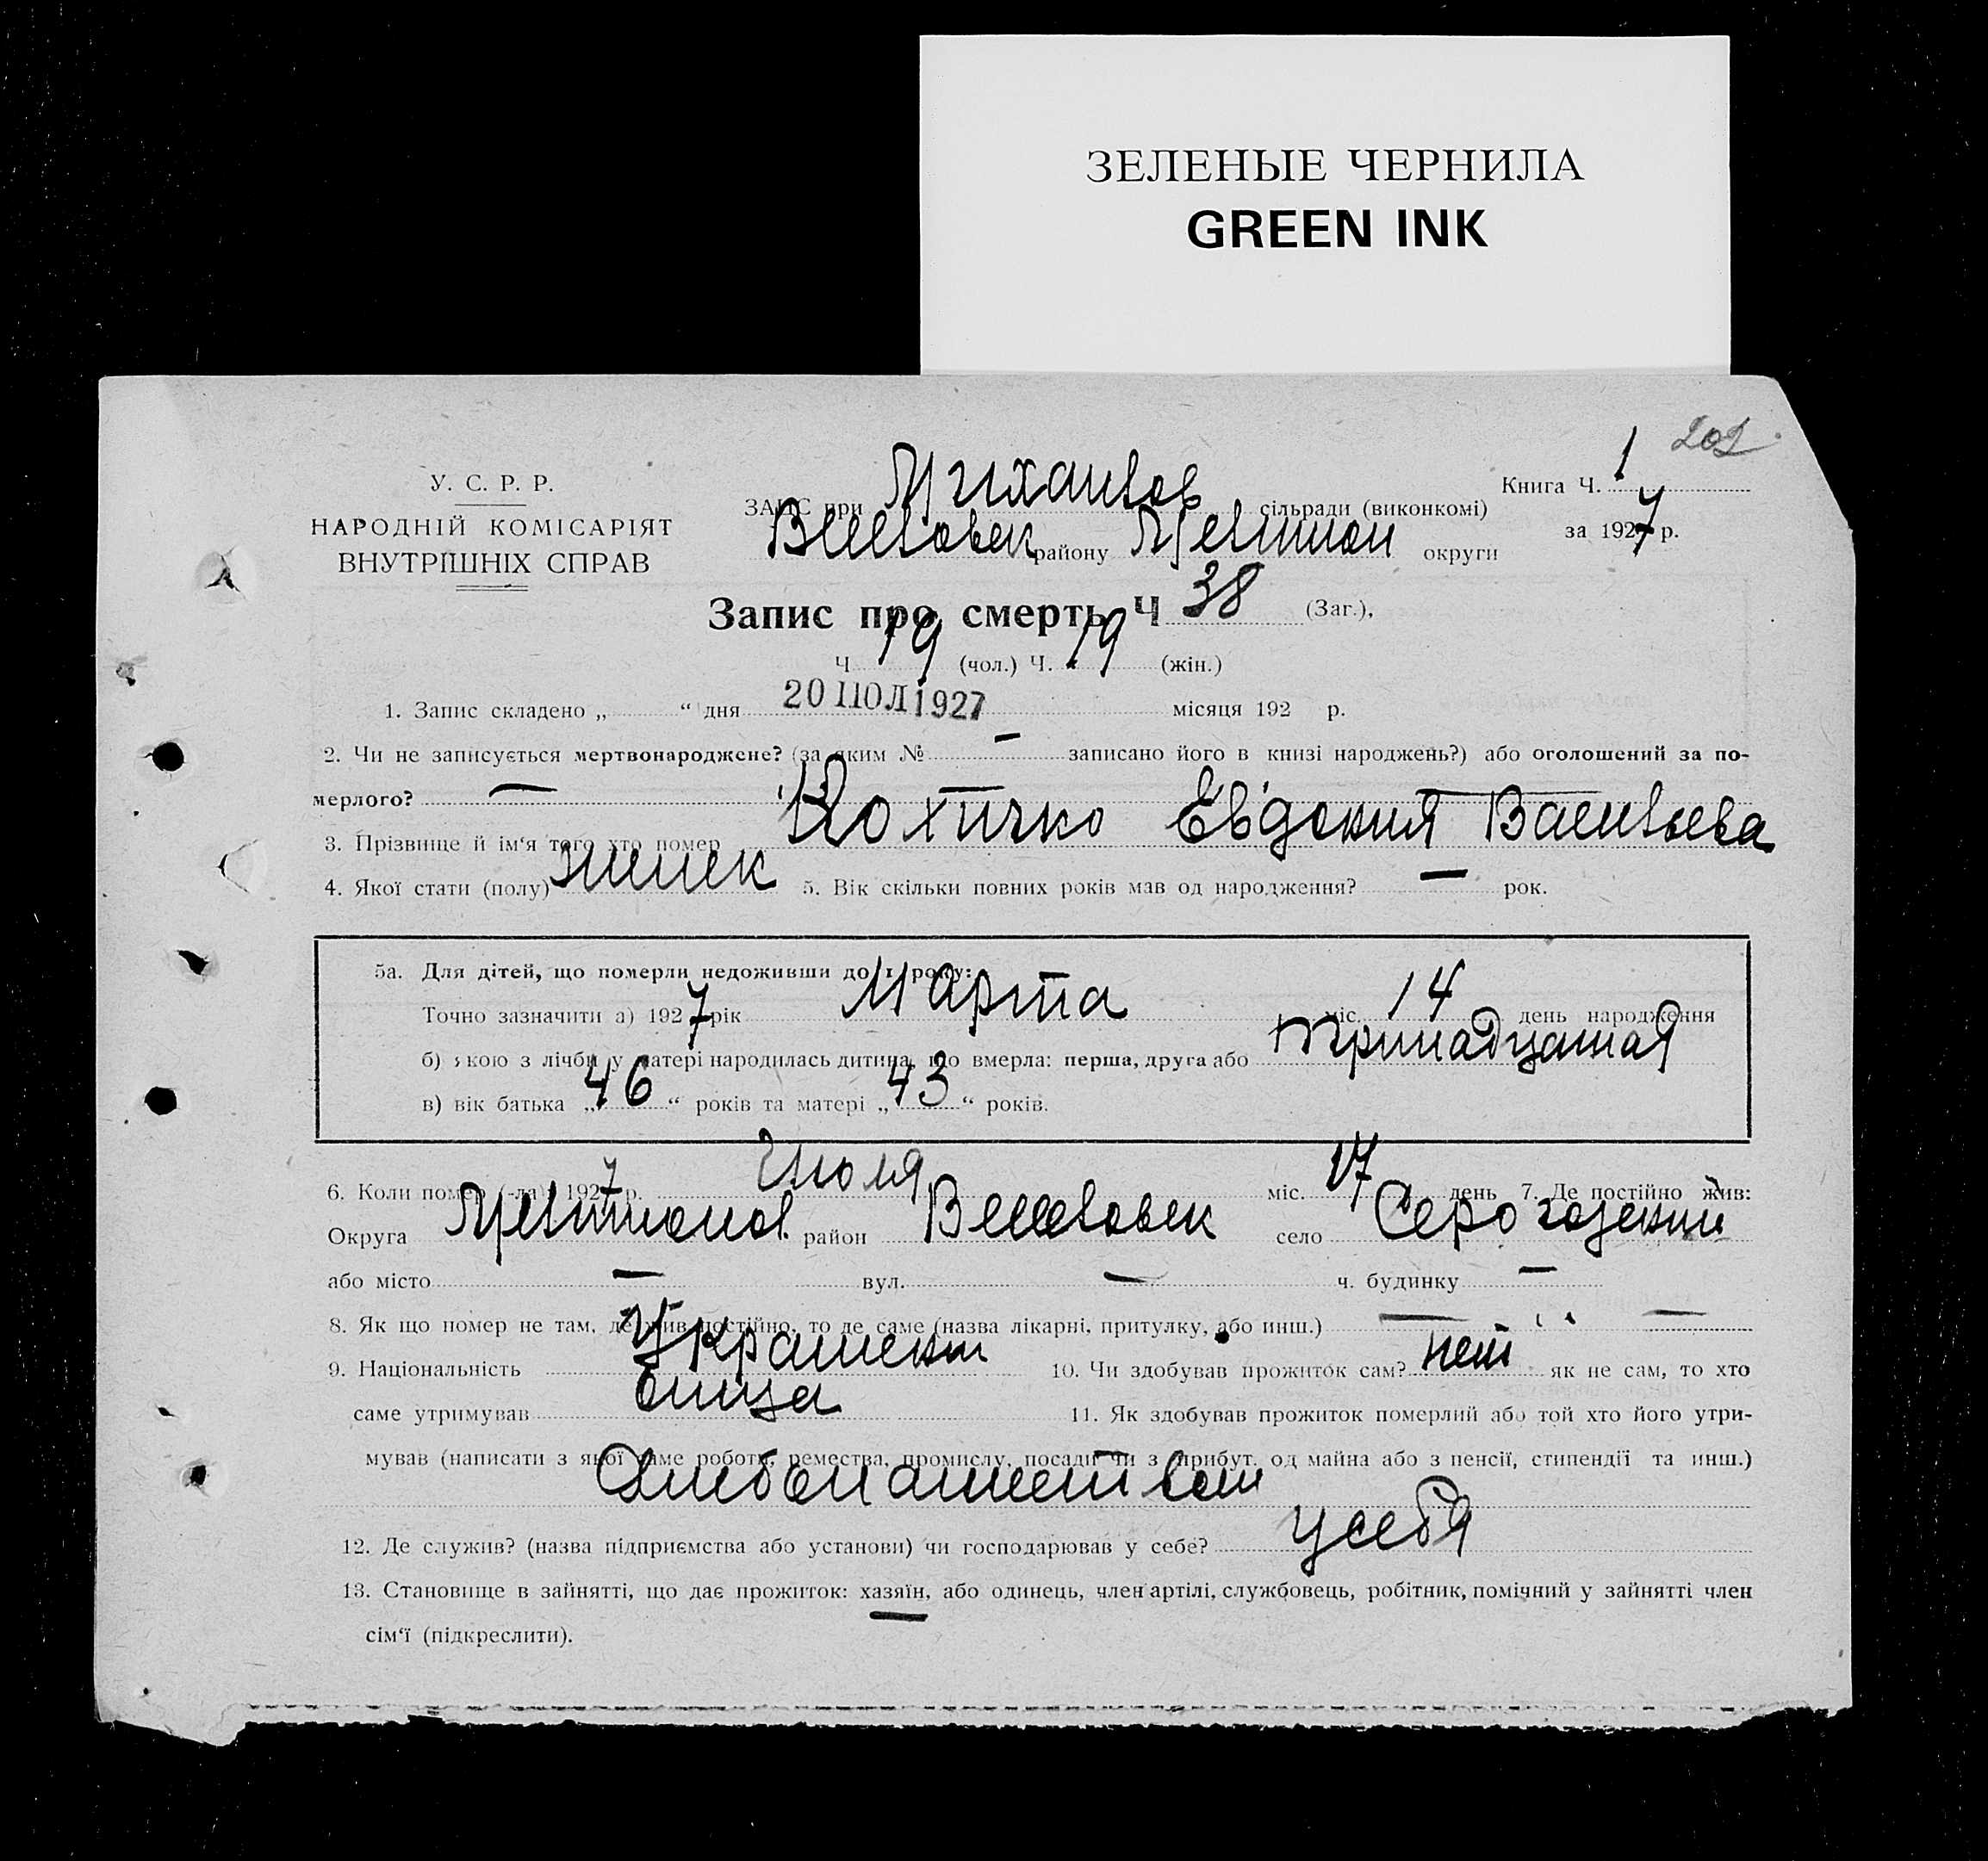 ЗЕЛЕНЫЕ ЧЕРНИЛА
GREEN INK
202
У. С. Р. Р.
НАРОДНІЙ КОМІСАРІЯТ
ВНУТРІШНІХ СПРАВ
ЗАГС при Михайлов сільради (виконкомі)
району округи
Книга Ч. 1
за 1927 р.
Запис про смерть Ч 38 (Заг.),
Ч 19 (чол.) Ч. 19 (жін.)
1. Запис складено „ “ дня 20 ИЮЛ 1927 місяця 192 р.
2. Чи не записується мертвонароджене? (за яким № — записано його в книзі народжень?) або оголошений за по-
мерлого? —
3. Прізвище й ім‘я того хто помер Кохичко Евдокия Васильева
4. Якої стати (полу) женск 5. Вік скільки повних років мав од народження? — рок.
5а. Для дітей, що померли недоживши до 1 року:
Точно зазначити а) 1927 рік Марта міс. 14 день народження
б) якою з лічби у матері народилась дитина, що вмерла: перша, друга або тринадцатая
в) вік батька „46“ років та матері „43“ років.
6. Коли помер (-ла) 1927 р. Июля міс. 17 день 7. Де постійно жив:
Округа район село
або місто — вул. — ч. будинку —
8. Як що помер не там, де жив постійно, то де саме (назва лікарні, притулку, або инш.) —
9. Національність Украинка 10. Чи здобував прожиток сам? нет як не сам, то хто
саме утримував отца 11. Як здобував прожиток померлий або той хто його утри-
мував (написати з якої саме роботи, ремества, промислу, посади чи з прибут. од майна або з пенсії, стипендії та инш.)
Хлебопашеством
12. Де служив? (назва підприємства або установи) чи господарював у себе? у себя
13. Становище в зайнятті, що дає прожиток: хазяїн, або одинець, член артілі, службовець, робітник, помічний у зайнятті член
сім‘ї (підкреслити).